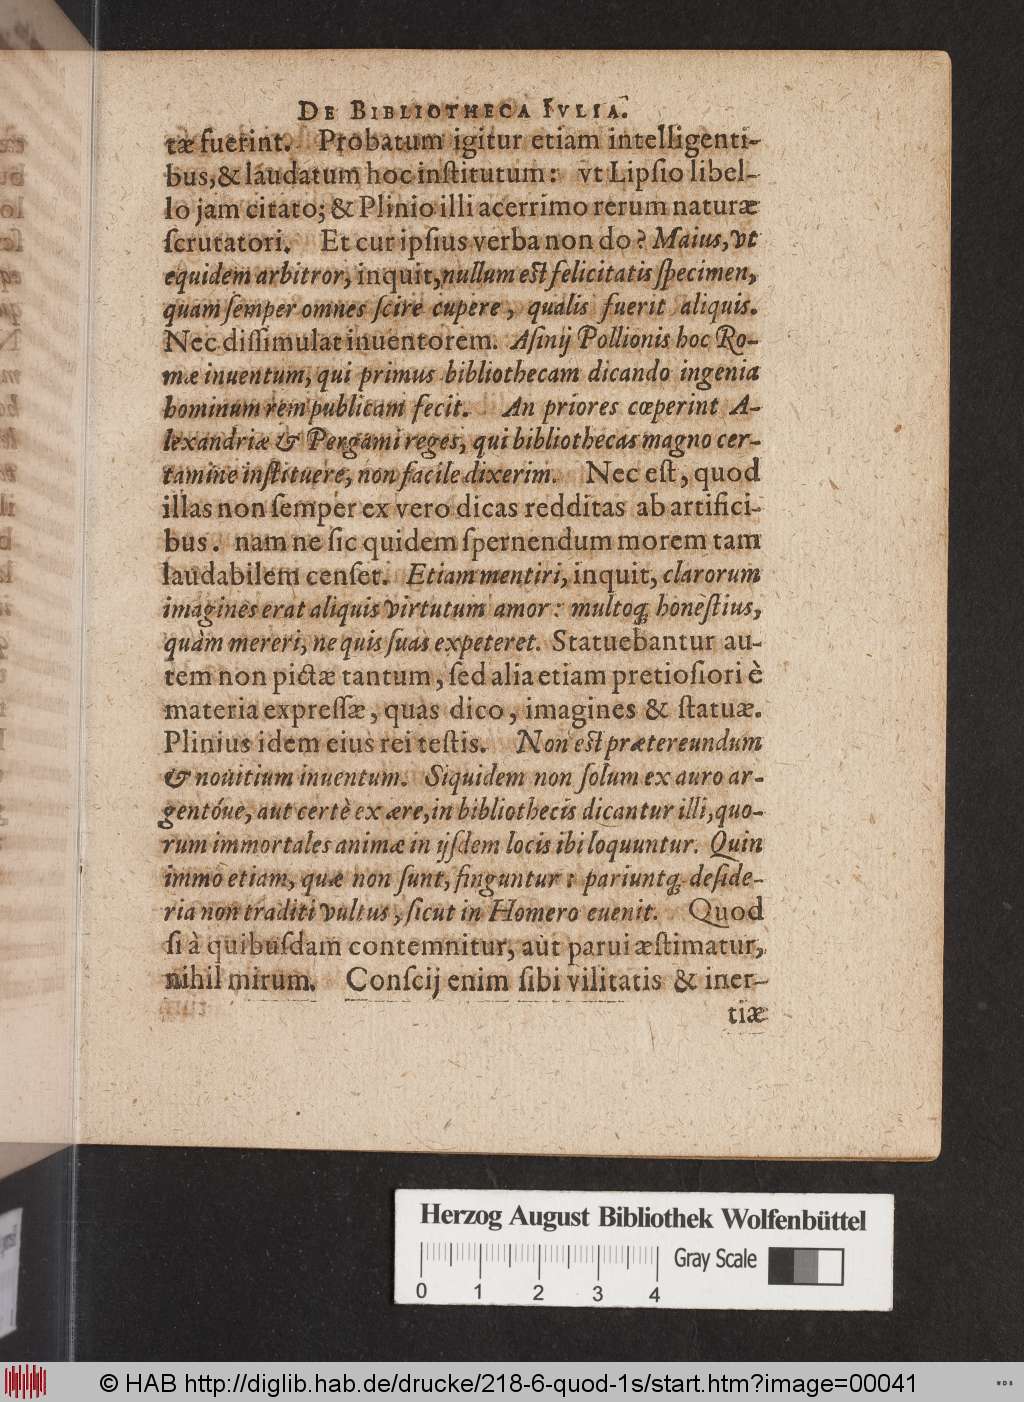 DE BIBLIOTHECA IVLIA.
tæ fuerint. Probatum igitur etiam intelligenti-
bus, & laudatum hoc inſtitutum: vt Lipſio libel-
lo jam citato; & Plinio illi acerrimo rerum naturæ
ſcrutatori. Et cur ipſius verba non do? Maius, vt
equidem arbitror, inquit, nullum eſt felicitatis ſpecimen,
quam ſemper omnes ſcire cupere, qualis fuerit aliquis.
Nec diſſimulat inuentorem. Aſinij Pollionis hoc Ro-
mæ inuentum, qui primus bibliothecam dicando ingenia
hominum rem publicam fecit. An priores cœperint A-
lexandriæ & Pergami reges, qui bibliothecas magno cer-
tamine inſtituere, non facile dixerim. Nec eſt, quod
illas non ſemper ex vero dicas redditas ab artifici-
bus. nam ne ſic quidem ſpernendum morem tam
laudabilem cenſet. Etiam mentiri, inquit, clarorum
imagines erat aliquis virtutum amor: multoq́; honeſtius,
quàm mereri, ne quis ſuas expeteret. Statuebantur au-
tem non pictæ tantum, ſed alia etiam pretioſiori è
materia expreſſæ, quas dico, imagines & ſtatuæ.
Plinius idem eius rei teſtis. Non eſt prætereundum
& nouitium inuentum. Siquidem non ſolum ex auro ar-
gentóue, aut certè ex ære, in bibliothecis dicantur illi, quo-
rum immortales animæ in ijſdem locis ibi loquuntur. Quin
immò etiam, quæ non ſunt, finguntur: pariuntq́; deſide-
ria non traditi vultus, ſicut in Homero euenit. Quod
ſi à quibuſdam contemnitur, aut parui æſtimatur,
nihil mirum. Conſcij enim ſibi vilitatis & iner-
tiæ
Herzog August Bibliothek Wolfenbüttel
Gray Scale
0 1 2 3 4
© HAB http://diglib.hab.de/drucke/218-6-quod-1s/start.htm?image=00041